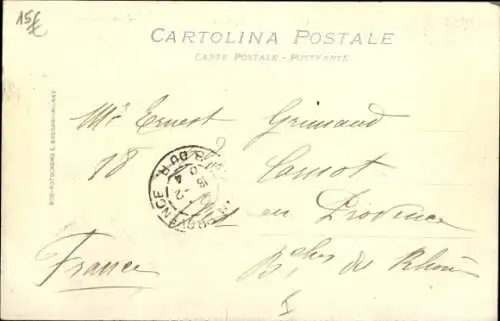 15€
CARTOLINA POSTALE
CARTE POSTALE - POSTKARTE
Mr Ernest Grimaud
18
en Provence
Bches du Rhône
France